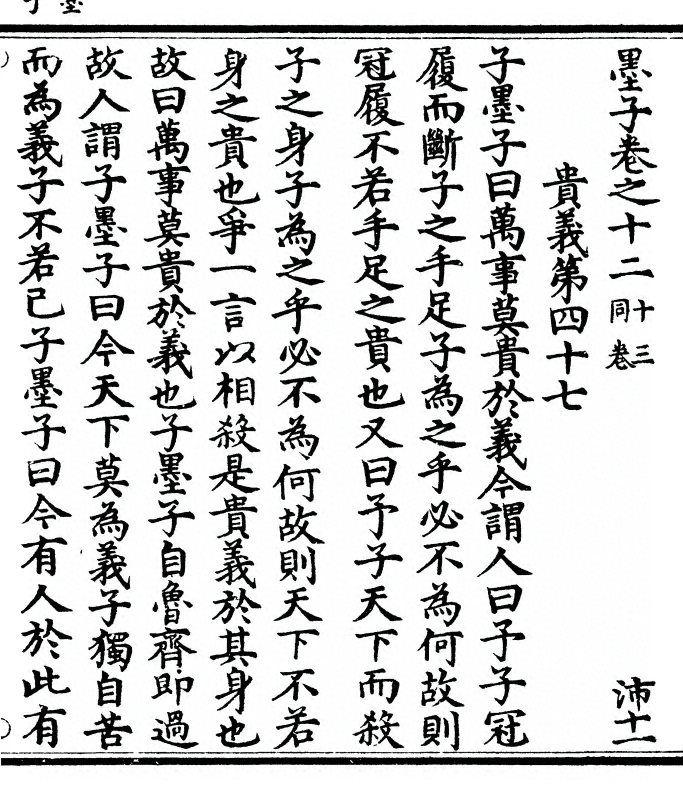 墨子卷之十二 十三同卷 沛十一
貴義第四十七
子墨子曰萬事莫貴於義今謂人曰予子冠
履而斷子之手足子為之乎必不為何故則
冠履不若手足之貴也又曰予子天下而殺
子之身子為之乎必不為何故則天下不若
身之貴也爭一言以相殺是貴義於其身也
故曰萬事莫貴於義也子墨子自魯齊即過
故人謂子墨子曰今天下莫為義子獨自苦
而為義子不若已子墨子曰今有人於此有